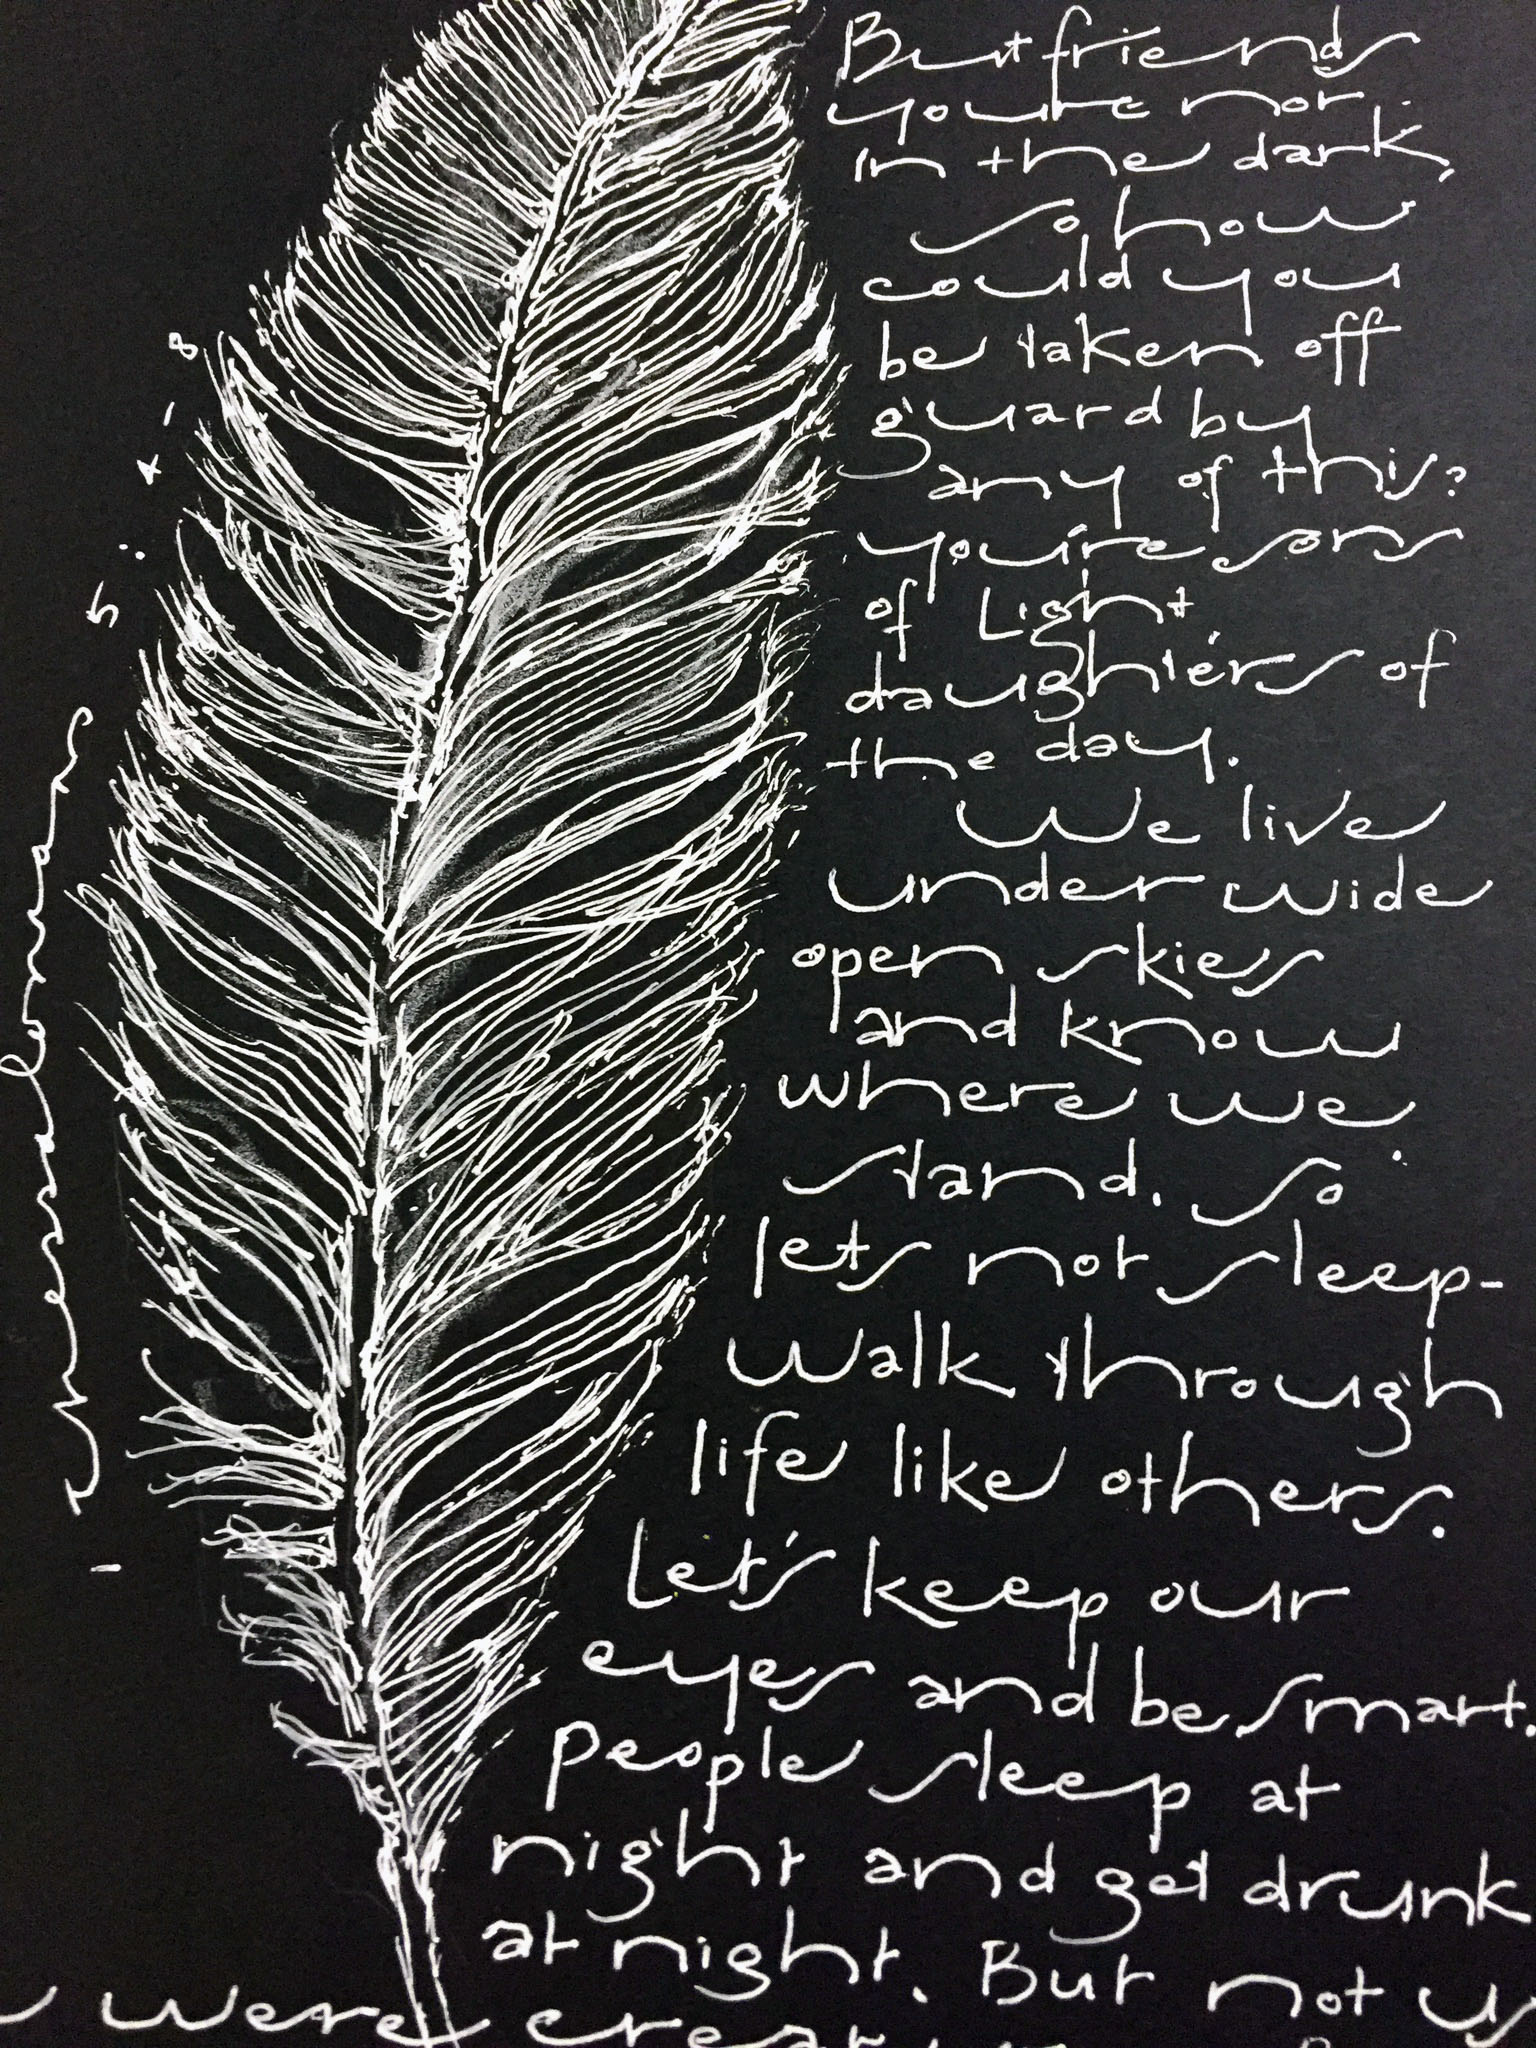 But friends
you're not
in the dark,
so how
could you
be taken off
guard by
any of this?
you're sons
of Light
daughters of
the day.
We live
under wide
open skies
and know
where we
stand. so
lets not sleep-
walk through
life like others.
Let's keep our
eyes and be smart.
People sleep at
night and get drunk
at night. But not us
were
1 thessalonians 5:4-8